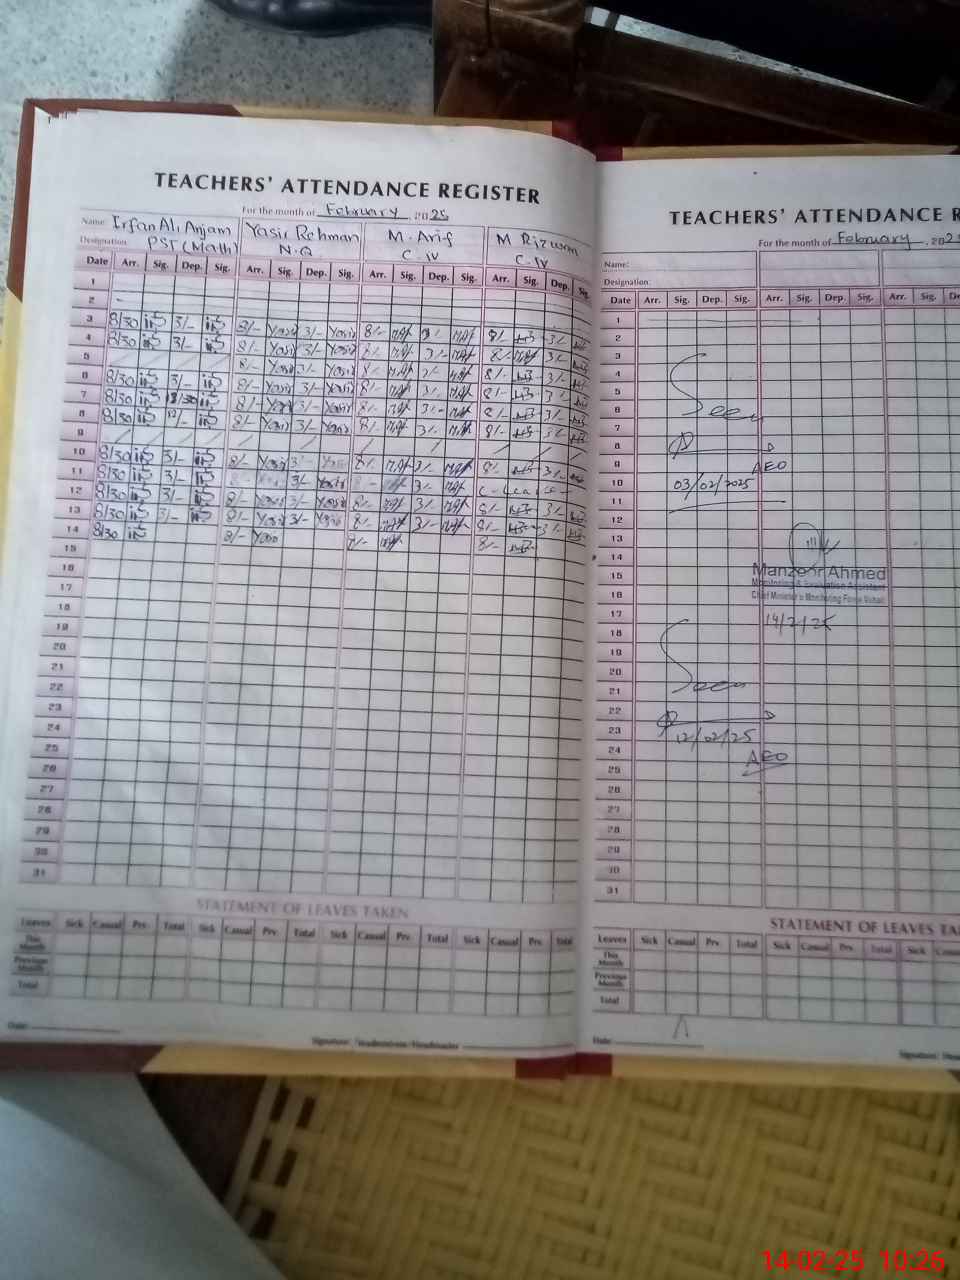 TEACHERS' ATTENDANCE REGISTER
For the month of February, 2025
Name: Irfan Ali Anjam Yasir Rehman M. Arif M Rizwan
Designation: PST (Math) N.Q C-IV C-IV
Date Arr. Sig. Dep. Sig. Arr. Sig. Dep. Sig. Arr. Sig. Dep. Sig. Arr. Sig. Dep. Sig.
1
2
3 8/30 3/- 8/- Yasir 3/- Yasir 8/- 3/- 8/- 3/-
4 8/30 3/- 8/- Yasir 3/- Yasir 8/- 3/- 8/- 3/-
5 8/- Yasir 3/- Yasir 8/- 8/- 3/-
6 8/30 3/- 8/- Yasir 3/- Yasir 8/- 3/- 8/- 3/-
7 8/30 8/- Yasir 3/- Yasir 8/- 3/- 8/- 3/-
8 8/30 12/- 8/- Yasir 3/- Yasir 8/- 3/- 8/- 3/-
9
10 8/30 3/- 8/- Yasir 3/- Yasir 8/- 3/- 8/- 3/-
11 8/30 3/- 3/- Yasir 3/- C-Leave-
12 8/30 3/- 8/- Yasir 3/- Yasir 8/- 3/- 8/- 3/-
13 8/30 3/- 8/- Yasir 3/- Yasir 8/- 3/- 8/- 3/-
14 8/30 8/- Yasir 8/- 8/-
15
16
17
18
19
20
21
22
23
24
25
26
27
28
29
30
31
STATEMENT OF LEAVES TAKEN
Leaves Sick Casual Prv. Total Sick Casual Prv. Total Sick Casual Prv. Total Sick Casual Prv. Total
This Month
Previous Month
Total
Date:
Signature: Headmistress/Headmaster
TEACHERS' ATTENDANCE R
For the month of February, 2025
Name:
Designation:
Date Arr. Sig. Dep. Sig. Arr. Sig. Dep. Sig. Arr. Sig. De
1
2
3
4
5
6 Seen
7
8
9 AEO
10 03/02/2025
11
12
13
14
15 Manzoor Ahmed
Monitoring & Evaluation Assistant
16 Chief Minister's Monitoring Force
17 14/2/25
18
19
20
21 Seen
22
23 12/02/25
24 AEO
25
26
27
28
29
30
31
STATEMENT OF LEAVES TA
Leaves Sick Casual Prv. Total Sick Casual Prv. Total Sick
This Month
Previous Month
Total
Date:
Signature:
14-02-25 10:26